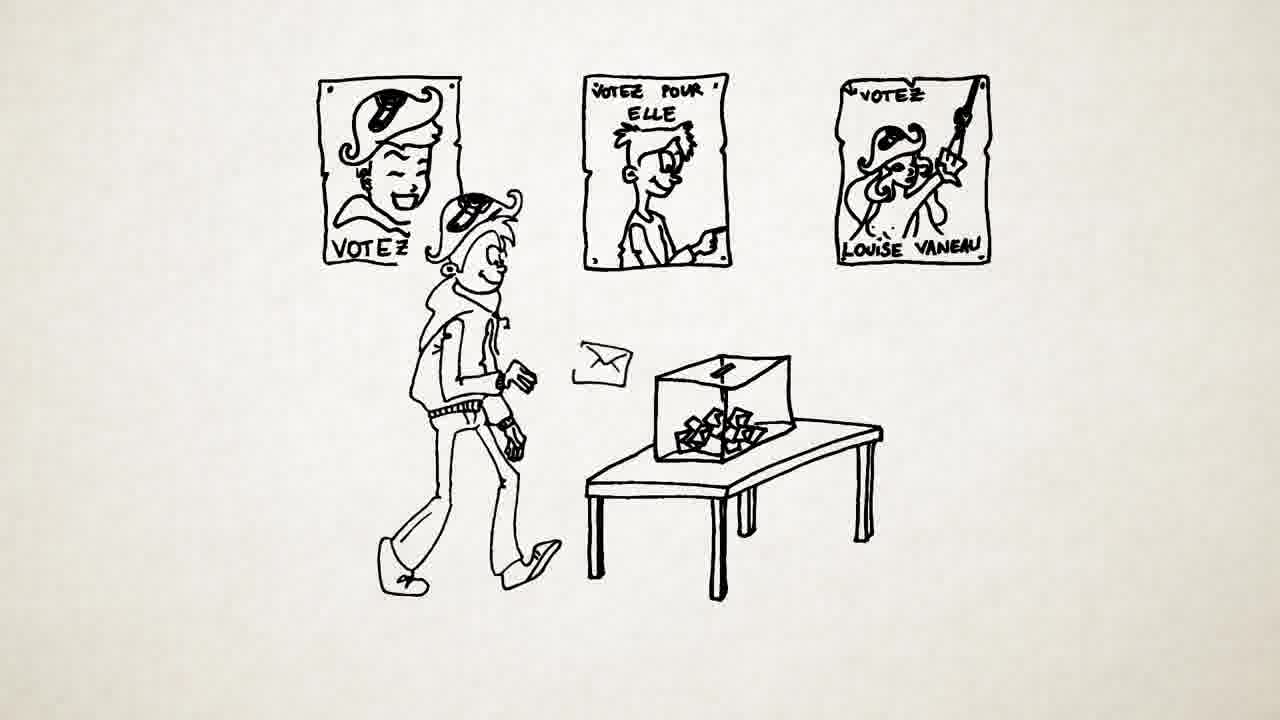 VOTEZ
VOTEZ POUR
ELLE
VOTEZ
LOUISE VANEAU